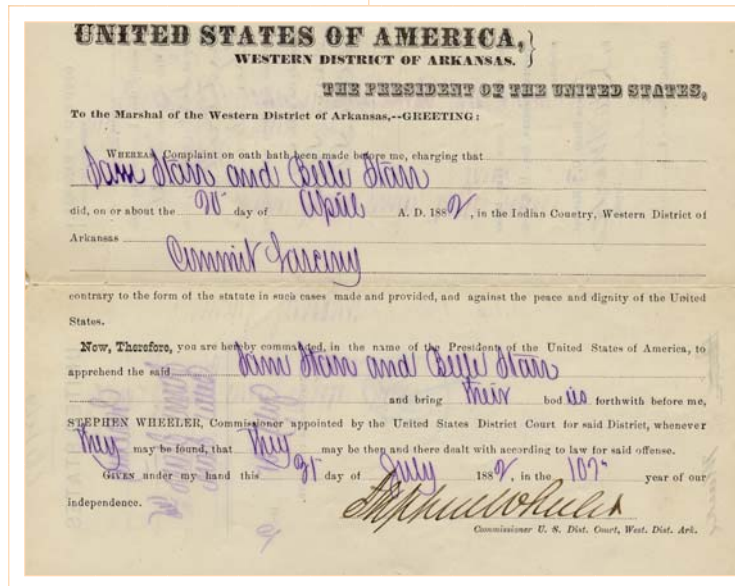 UNITED STATES OF AMERICA,
WESTERN DISTRICT OF ARKANSAS.
THE PRESIDENT OF THE UNITED STATES,
To the Marshal of the Western District of Arkansas,--GREETING:
WHEREAS Complaint on oath hath been made before me, charging that
Sam Starr and Belle Starr
did, on or about the 20 day of April A. D. 1882, in the Indian Country, Western District of
Arkansas
Commit Larceny
contrary to the form of the statute in such cases made and provided, and against the peace and dignity of the United
States.
Now, Therefore, you are hereby commanded, in the name of the President of the United States of America, to
apprehend the said Sam Starr and Belle Starr
and bring their bodies forthwith before me,
STEPHEN WHEELER, Commissioner appointed by the United States District Court for said District, whenever
they may be found, that they may be then and there dealt with according to law for said offense.
GIVEN under my hand this 31 day of July 1882, in the 107 year of our
independence.
Stephen Wheeler
Commissioner U. S. Dist. Court, West. Dist. Ark.